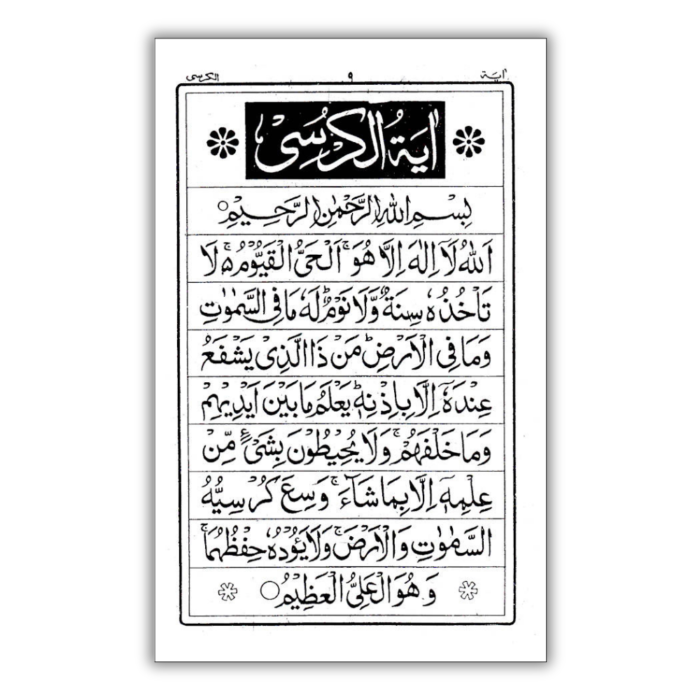 اٰية ۹ الكرسى
اٰيَةُ الْكُرْسِى
بِسْمِ اللّٰهِ الرَّحْمٰنِ الرَّحِيْمِ ○
اَللّٰهُ لَآ اِلٰهَ اِلَّا هُوَ ۚ اَلْحَىُّ الْقَيُّوْمُ ۵ ۚ لَا
تَاْخُذُهٗ سِنَةٌ وَّلَا نَوْمٌ ؕ لَهٗ مَا فِى السَّمٰوٰتِ
وَمَا فِى الْاَرْضِ ؕ مَنْ ذَا الَّذِىْ يَشْفَعُ
عِنْدَهٗٓ اِلَّا بِاِذْنِهٖ ؕ يَعْلَمُ مَا بَيْنَ اَيْدِيْهِمْ
وَمَا خَلْفَهُمْ ۚ وَلَا يُحِيْطُوْنَ بِشَىْءٍ مِّنْ
عِلْمِهٖٓ اِلَّا بِمَا شَآءَ ۚ وَسِعَ كُرْسِيُّهُ
السَّمٰوٰتِ وَالْاَرْضَ ۚ وَلَا يَئُوْدُهٗ حِفْظُهُمَا ۚ
وَهُوَ الْعَلِىُّ الْعَظِيْمُ ○